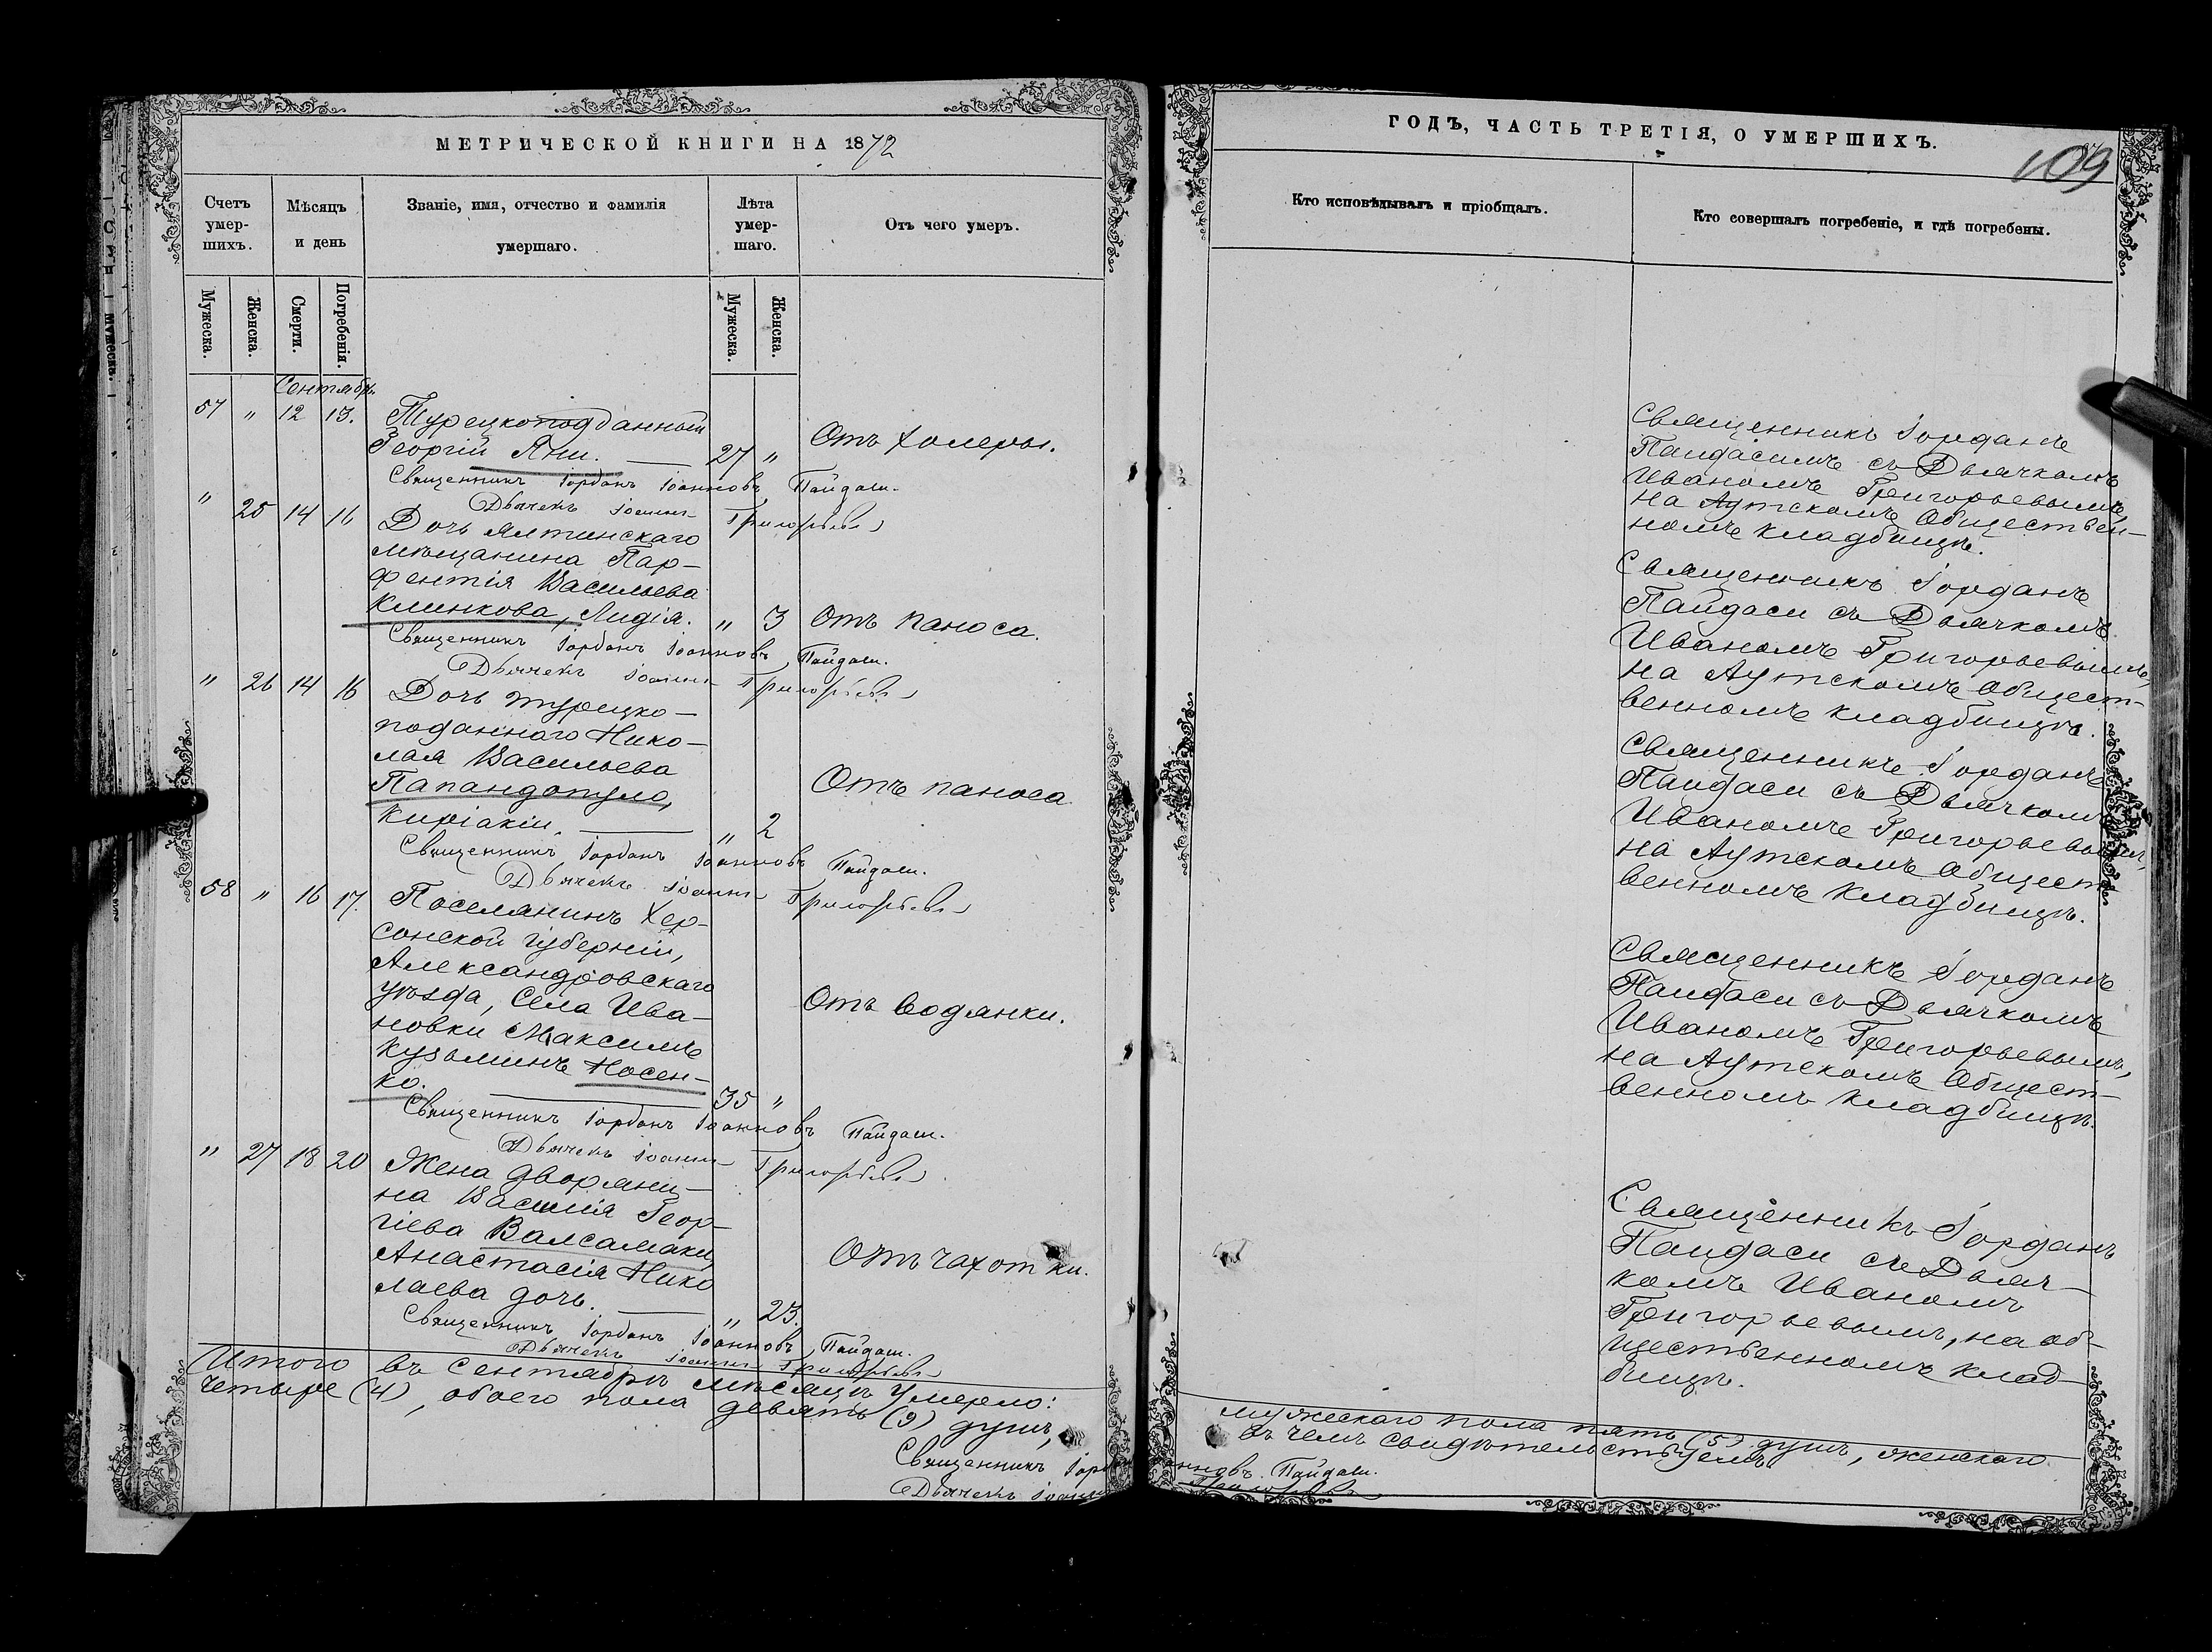 МЕТРИЧЕСКОЙ КНИГИ НА 1872
Счетъ умер-шихъ.
Мѣсяцъ и день
Званіе, имя, отчество и фамилія умершаго.
Лѣта умер-шаго.
Отъ чего умеръ.
Мужеска.
Женска.
Смерти.
Погребенія.
Мужеска.
Женска.
Сентябрь
57 " 12 13. Турецкоподданный
Георгій Яни. 27 " Отъ холеры.
Священникъ Іорданъ Іоанновъ Пайдаси.
Дьячекъ Іоаннъ Григорьевъ
" 25 14 16 Дочь ялтинскаго
мѣщанина Пар-
фентія Васильева
Климкова, Лидія. " 3 Отъ паноса.
Священникъ Іорданъ Іоанновъ Пайдаси.
Дьячекъ Іоаннъ Григорьевъ
" 26 14 16 Дочь турецко-
поданного Нико-
лая Васильева
Папандопуло, Отъ паноса
Киріакіи. " 2
Священникъ Іорданъ Іоанновъ Пайдаси.
Дьячекъ Іоаннъ Григорьевъ
58 " 16 17. Поселянинъ Хер-
сонской губерніи,
Александровскаго
уѣзда, Села Ива- Отъ водянки.
новки Максимъ
Кузьминъ Носен-
ко. 35 "
Священникъ Іорданъ Іоанновъ Пайдаси.
Дьячекъ Іоаннъ Григорьевъ
" 27 18 20 Жена дворяни-
на Василія Геор-
гіева Валсамаки,
Анастасія Нико Отъ чахотки.
лаева дочь. " 23.
Священникъ Іорданъ Іоанновъ Пайдаси.
Дьячекъ Іоаннъ Григорьевъ
Итого въ Сентябрѣ мѣсяцѣ умерло:
четыре (4), обоего пола девять (9) душъ,
Священникъ Іорданъ
Дьячекъ Іоаннъ
ГОДЪ, ЧАСТЬ ТРЕТІЯ, О УМЕРШИХЪ.
109
Кто исповѣдывалъ и пріобщалъ.
Кто совершалъ погребеніе, и гдѣ погребены.
Священникъ Іорданъ
Пайдасимъ съ Дьячкомъ
Иваномъ Григорьевымъ,
на Аутскомъ Обществен-
номъ кладбищѣ.
Священникъ Іорданъ
Пайдаси съ Дьячкомъ
Иваномъ Григорьевымъ,
на Аутскомъ Общест-
венномъ кладбищѣ.
Священникъ Іорданъ
Пайдаси съ Дьячкомъ
Иваномъ Григорьевымъ,
на Аутскомъ Общест-
венномъ кладбищѣ.
Священникъ Іорданъ
Пайдаси съ Дьячкомъ
Иваномъ Григорьевымъ,
на Аутскомъ Общест-
венномъ кладбищѣ.
Священникъ Іорданъ
Пайдаси съ Дьяч-
комъ Иваномъ
Григорьевымъ, на об-
щественномъ клад-
бищѣ.
мужескаго пола пять (5) душъ, женскаго
въ чемъ свидѣтельствуемъ
Іоанновъ Пайдаси.
Григорьевъ